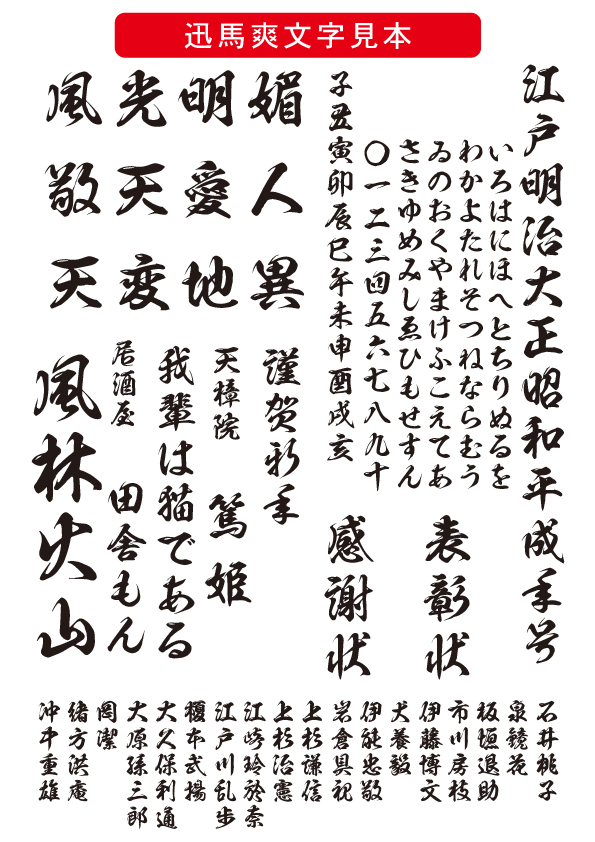 迅馬爽文字見本
江戸明治大正昭和平成年号
いろはにほへとちりぬるを
わかよたれそつねならむう
ゐのおくやまけふこえてあ
さきゆめみしゑひもせすん
〇一二三四五六七八九十
子丑寅卯辰巳午未申酉戌亥
表彰状
感謝状
風光明媚
敬天愛人
天変地異
謹賀新年
天樟院 篤姫
我輩は猫である
居酒屋 田舎もん
風林火山
石井桃子
泉鏡花
板垣退助
市川房枝
伊藤博文
犬養毅
伊能忠敬
岩倉具視
上杉謙信
上杉治憲
江崎玲於奈
江戸川乱歩
榎本武揚
大久保利通
大原孫三郎
岡潔
緒方洪庵
沖中重雄